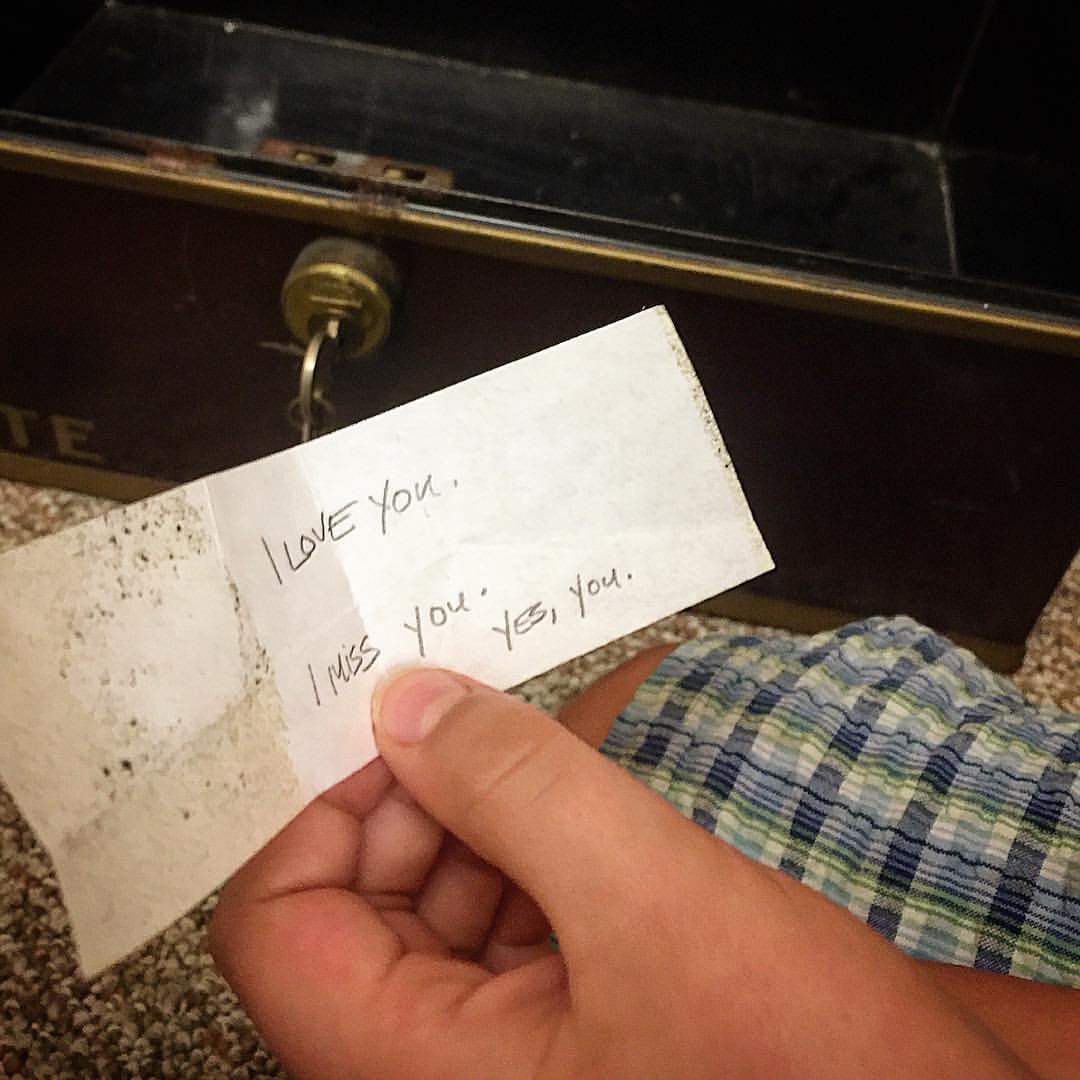 TE
I LOVE YOU.
I MISS YOU.
YES, YOU.